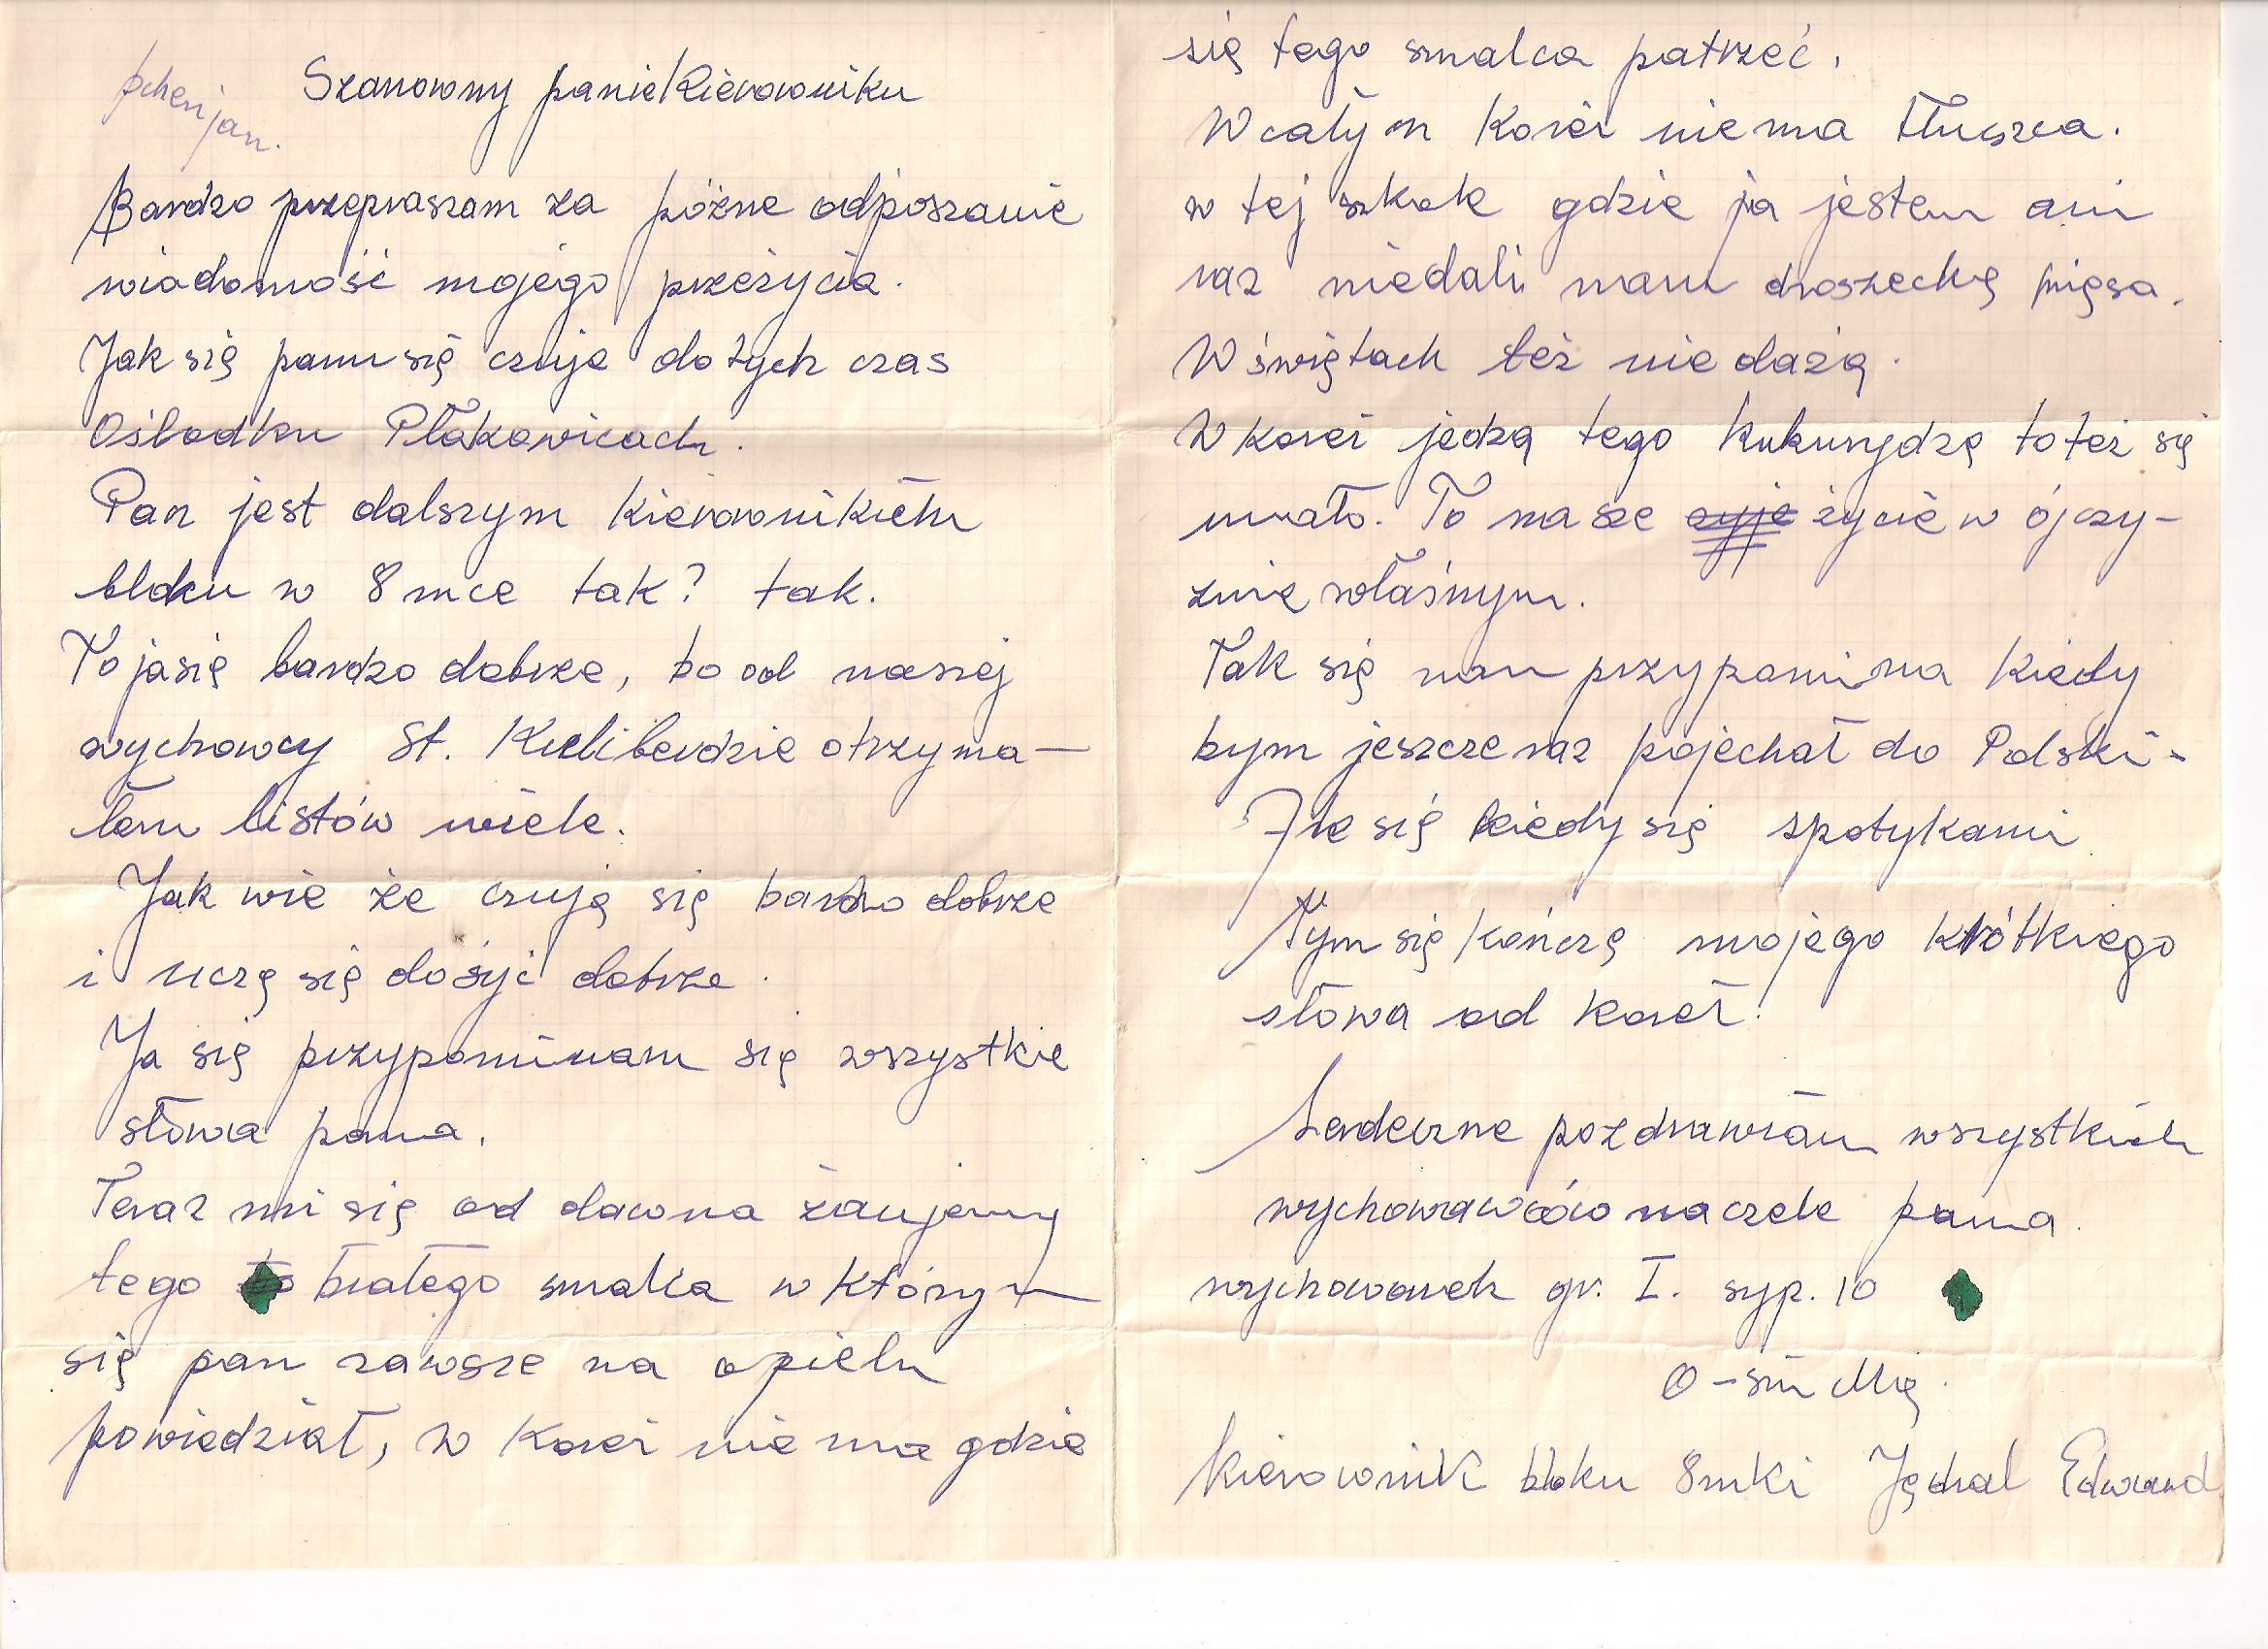 phenjan.
Szanowny panie Kierowniku
Bardzo przepraszam za późne odposzanie
wiadomość mojego przeżycia.
Jak się panu się czuje do tych czas
Ośbodku Płakowicach.
Pan jest dalszym kierownikiem
bloku w 8mce tak? tak.
To ja się bardzo dobrze, bo od naszej
wychowcy St. Kuliberdzie otrzyma-
łem listów wiele.
Jak wie że czuję się bardzo dobrze
i uczę się dosyć dobrze.
Ja się przypominam się wszystkie
słowa pana.
Teraz mi się od dawna żaujemy
tego białego smalca w którym
się pan zawsze na apielu
powiedział, w Korei nie ma gdzie
się tego smalca patrzeć.
W całym Korei nie ma tłuszca.
w tej szkole gdzie ja jestem ani
raz niedali nam droszeckę mięsa.
W świętach też nie dażą.
W korei jedzą tego kukurydzę to też się
mało. To nasze życie w ójczy-
znie własnym.
Tak się nam przypomina kiedy
bym jeszcze raz pojechał do Polski.
Ile się kiedy się spotykami
Tym się kończę mojego krótkiego
słowa od Korei.
Serdeczne pozdrawiam wszystkich
wychowawców na czele pana.
wychowanek gr. I. syp. 10
O-sin Mię.
kierownik bloku 8mki Jęchal Edward